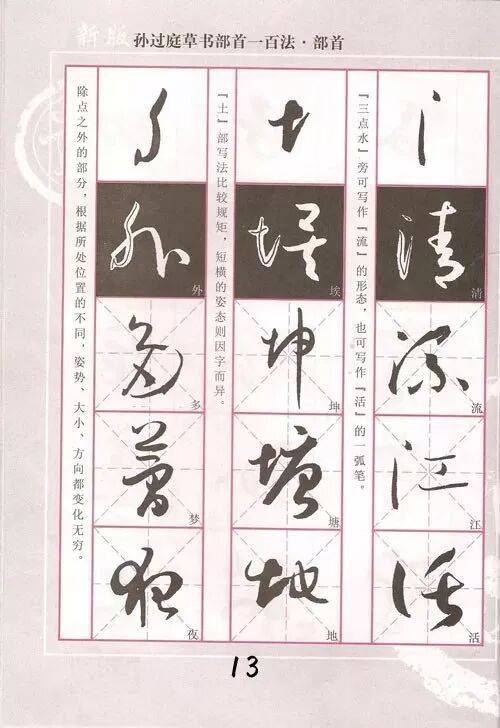 新版 孙过庭草书部首一百法·部首
『三点水』旁可写作『流』的形态，也可写作『活』的一弧笔。
清
流
江
活
『土』部写法比较规矩，短横的姿态则因字而异。
埃
坤
塘
地
除点之外的部分，根据所处位置的不同，姿势、大小、方向都变化无穷。
外
多
梦
夜
13